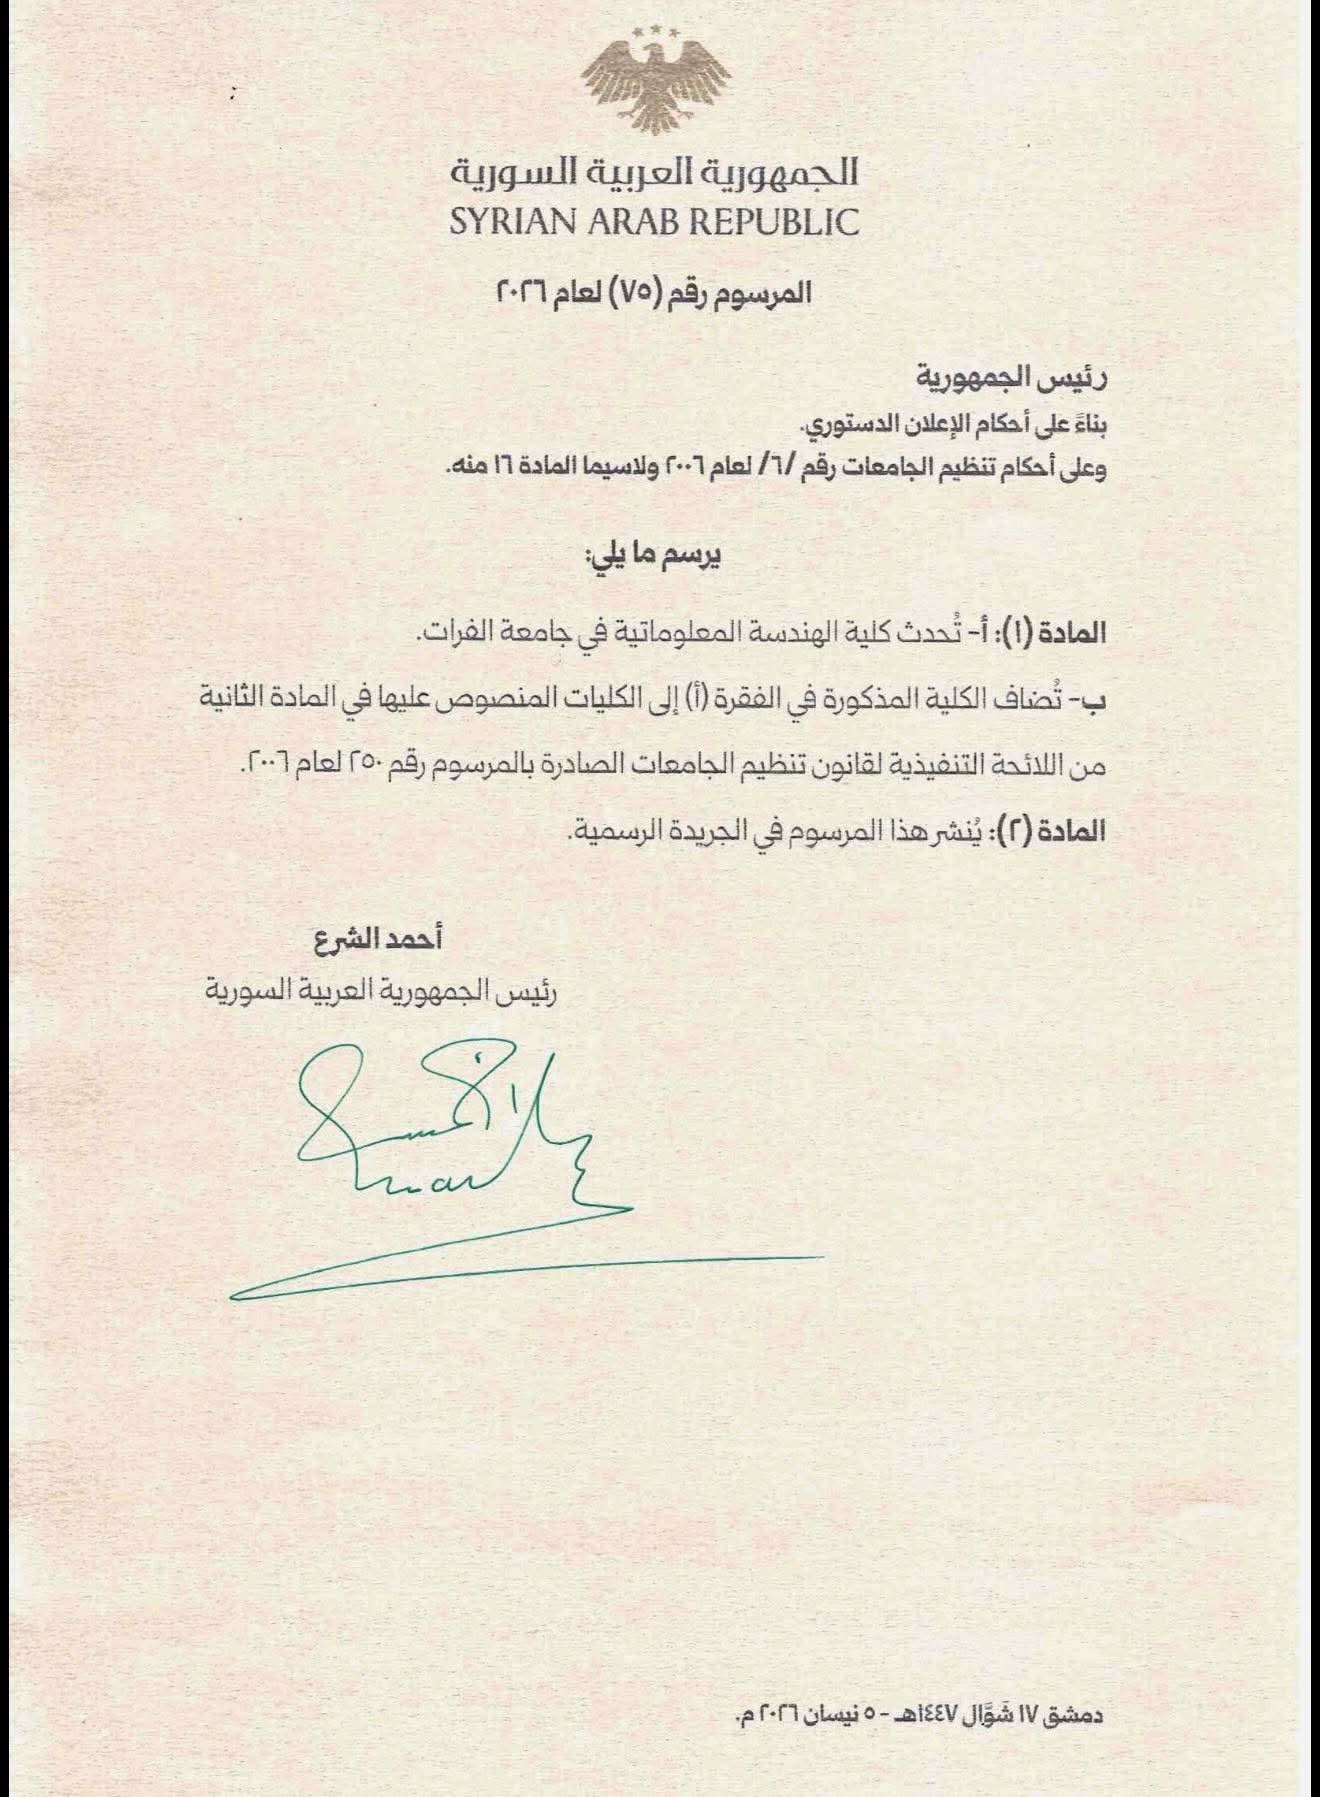 الجمهورية العربية السورية
SYRIAN ARAB REPUBLIC
المرسوم رقم (٧٥) لعام ٢٠٢٦
رئيس الجمهورية
بناءً على أحكام الإعلان الدستوري.
وعلى أحكام تنظيم الجامعات رقم /٦/ لعام ٢٠٠٦ ولاسيما المادة ١٦ منه.
يرسم ما يلي:
المادة (١): أ- تُحدث كلية الهندسة المعلوماتية في جامعة الفرات.
ب- تُضاف الكلية المذكورة في الفقرة (أ) إلى الكليات المنصوص عليها في المادة الثانية
من اللائحة التنفيذية لقانون تنظيم الجامعات الصادرة بالمرسوم رقم ٢٥٠ لعام ٢٠٠٦.
المادة (٢): يُنشر هذا المرسوم في الجريدة الرسمية.
أحمد الشرع
رئيس الجمهورية العربية السورية
دمشق ١٧ شَوَّال ١٤٤٧هـ - ٥ نيسان ٢٠٢٦ م.